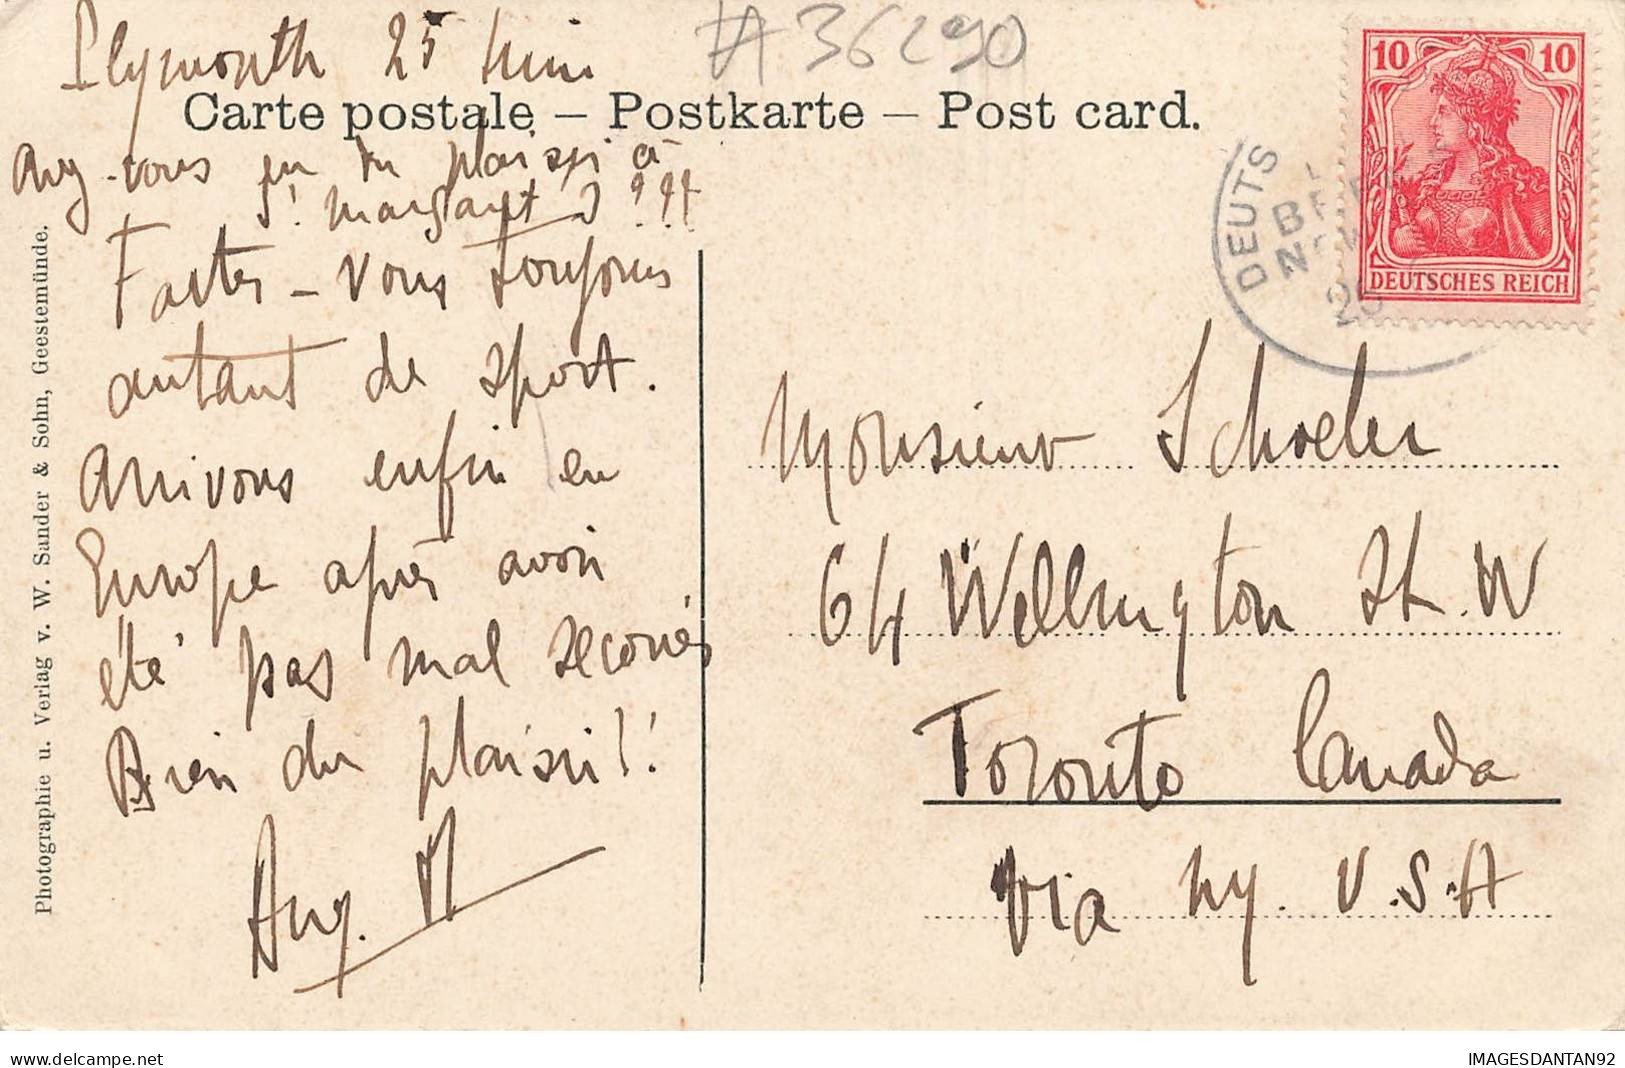 Plymouth 25 Juin
# 36290
Carte postale – Postkarte – Post card.
avez-vous eu du plaisir à
St. Margaret ? !!!
Faites-vous toujours
autant de sport.
arrivons enfin en
Europe après avoir
été pas mal secoués
Bien du plaisir!!
Aug.
Photographie u. Verlag v. W. Sander & Sohn, Geestemünde.
10 10
DEUTSCHES REICH
DEUTS
NEW
Monsieur Schoeler
64 Wellington St. W
Toronto Canada
Via NY. U.S.A
www.delcampe.net
IMAGESDANTAN92